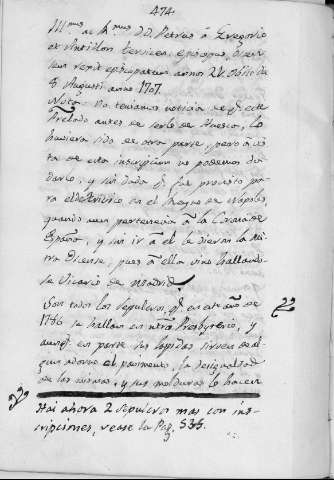 474
Il.mus ac R.mus D.D. Petrus á Gregorio
et Antillon Episcopus, Oscen-
sem rexit episcopatum annos 21. obiit die
8 Augusti anno 1707.
Nota. No teniamos noticia de q.e este
Prelado antes de serlo de Huesca, lo
huviera sido de otra parte, pero á vis
ta de esta inscripcion no podemos du-
darlo, y sin duda q.e fue provisto pa-
ra el de en el Reyno de Napoles,
quando aun pertenecia á la Corona de
España, y sin ir á él le dieran la Mi-
tra Oscense, pues á ella vino hallando-
se Vicario de Madrid.
Son todos los sepulcros q.e en este año de
1786 se hallan en ntro. Presbyterio, y
aunq.e en parte sus lapidas sirven de al-
gun adorno el pavimento, la desigualdad
de las mismas, y sus molduras lo hacen
Hai ahora 2 sepulcros mas con ins-
cripciones, vease la Pag. 535.